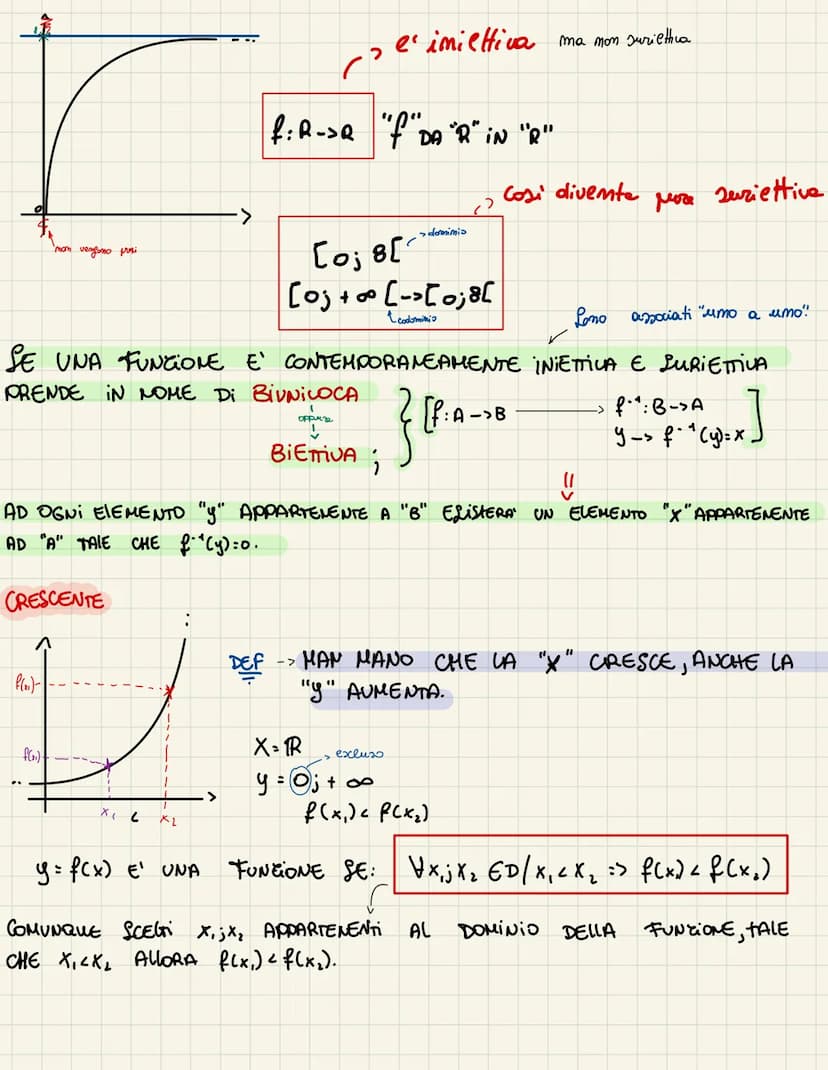 è iniettiva ma non suriettiva
f: R -> R "f" DA "R" iN "R"
così diventa pure suriettiva
non vengono presi
[0; 8[ -> dominio
[0; +∞[ -> [0; 8[
codominio
Sono associati "uno a uno".
SE UNA FUNZIONE E' CONTEMPORANEAMENTE iNiETTiVA E SURiETTiVA
PRENDE iN NOME Di BiUNiVOCA
oppure
BiETTiVA ;
} [f: A -> B -> f⁻¹: B -> A
y -> f⁻¹(y) = x ]
AD OGNi ElEMENTO "y" APPARTENENTE A "B" ESiSTERA' UN ELEMENTO "X" APPARTENENTE
AD "A" TALE CHE f⁻¹(y)=0.
CRESCENTE
DEF -> MAN MANO CHE LA "X" CRESCE, ANCHE LA
"y" AUMENTA.
f(x₂)
f(x₁)
x₁ < x₂
X = ℝ
-> escluso
y = 0; + ∞
f(x₁) < f(x₂)
y = f(x) E' UNA FUNZIONE SE: ∀x₁; x₂ ∈ D / x₁ < x₂ => f(x₁) < f(x₂)
COMUNQUE SCELTi x₁; x₂ APPARTENENTi AL DOMiNiO DELLA FUNZiONE, TALE
CHE x₁ < x₂ ALLORA f(x₁) < f(x₂).